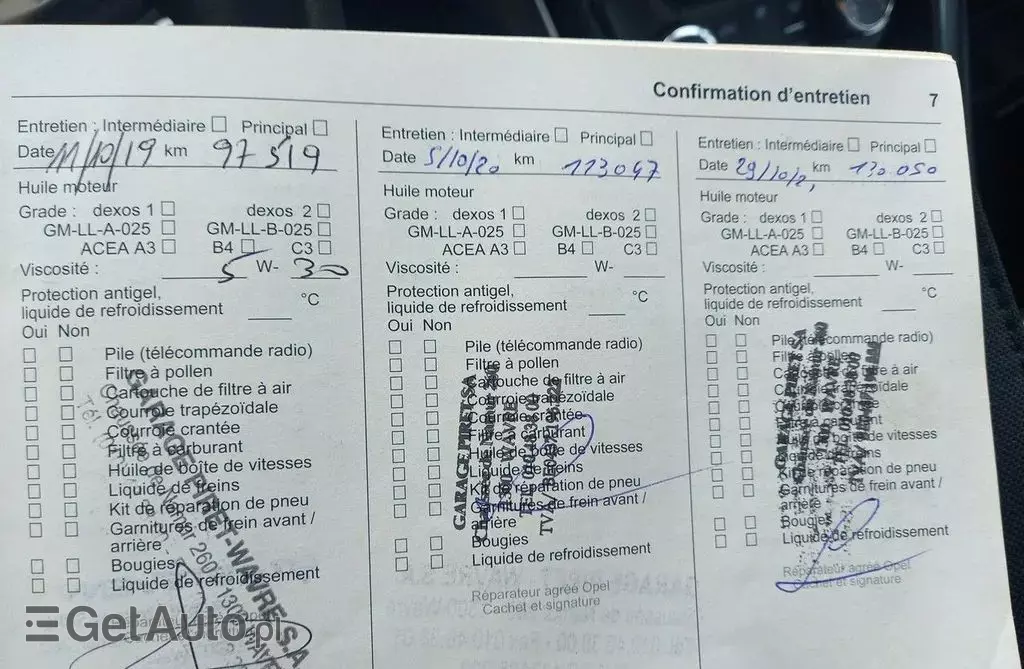 Confirmation d'entretien 7
Entretien : Intermédiaire Principal
Date 11/10/19 km 97519
Huile moteur
Grade : dexos 1 dexos 2
GM-LL-A-025 GM-LL-B-025
ACEA A3 B4 C3
Viscosité : 5 W- 30
Protection antigel,
liquide de refroidissement °C
Oui Non
Pile (télécommande radio)
Filtre à pollen
Cartouche de filtre à air
Courroie trapézoïdale
Courroie crantée
Filtre à carburant
Huile de boîte de vitesses
Liquide de freins
Kit de réparation de pneu
Garnitures de frein avant /
arrière
Bougies
Liquide de refroidissement
GARAGE PIRET-WAVRE S.A.
Entretien : Intermédiaire Principal
Date 5/10/20 km 113047
Huile moteur
Grade : dexos 1 dexos 2
GM-LL-A-025 GM-LL-B-025
ACEA A3 B4 C3
Viscosité : W-
Protection antigel,
liquide de refroidissement °C
Oui Non
Pile (télécommande radio)
Filtre à pollen
Cartouche de filtre à air
Courroie trapézoïdale
Courroie crantée
Filtre à carburant
Huile de boîte de vitesses
Liquide de freins
Kit de réparation de pneu
Garnitures de frein avant /
arrière
Bougies
Liquide de refroidissement
Réparateur agréé Opel
Cachet et signature
GARAGE PIRET SA
1300 WAVRE
Entretien : Intermédiaire Principal
Date 29/10/21 km 130.050
Huile moteur
Grade : dexos 1 dexos 2
GM-LL-A-025 GM-LL-B-025
ACEA A3 B4 C3
Viscosité : W-
Protection antigel,
liquide de refroidissement °C
Oui Non
Pile (télécommande radio)
Filtre à pollen
filtre à air
de vitesses
Kit de réparation de pneu
Garnitures de frein avant /
arrière
Bougies
Liquide de refroidissement
Réparateur agréé Opel
Cachet et signature
GARAGE PIRET SA
GetAuto.pls